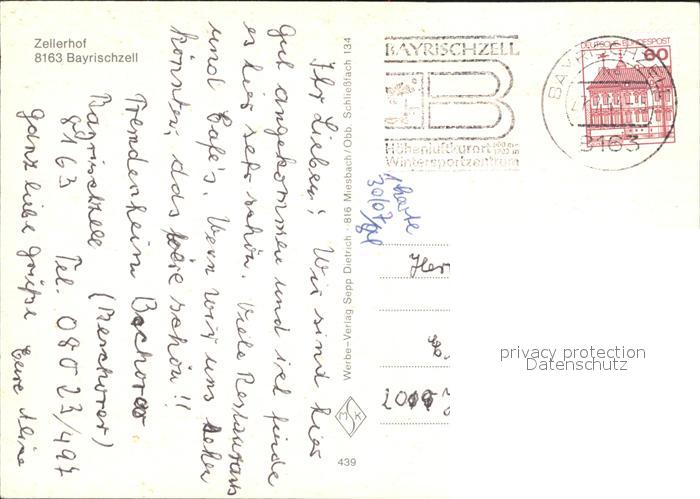 Zellerhof
8163 Bayrischzell
Ihr Lieben! Wir sind hier
gut angekommen und ich finde
es hier sehr schön. Viele Restaurants
und Café's. Wenn wir uns sehen
könnten, das wäre schön!!
Fremdenheim
Bayrischzell
8163 Tel. 08023/497
ganz liebe Grüße Eure
Werbe-Verlag Sepp Dietrich · 816 Miesbach/Obb. Schließfach 134
MSK
439
BAYRISCHZELL
B
Höhenluftkurort
Wintersportzentrum
BAYRISCHZELL
8163
DEUTSCHE BUNDESPOST
60
1 Karte
30/07/
privacy protection
Datenschutz